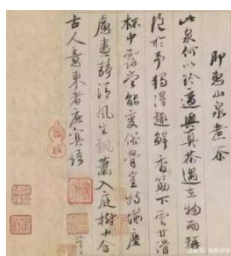 即惠山泉煮茶
此泉何以珍適與真茶遇在物兩稱
絕於予獨得趣鮮香筯下雲甘滑
杯中露當能變俗骨豈特湔塵
慮晝静清風生飄蕭入庭樹中含
古人意來者庶冥悟